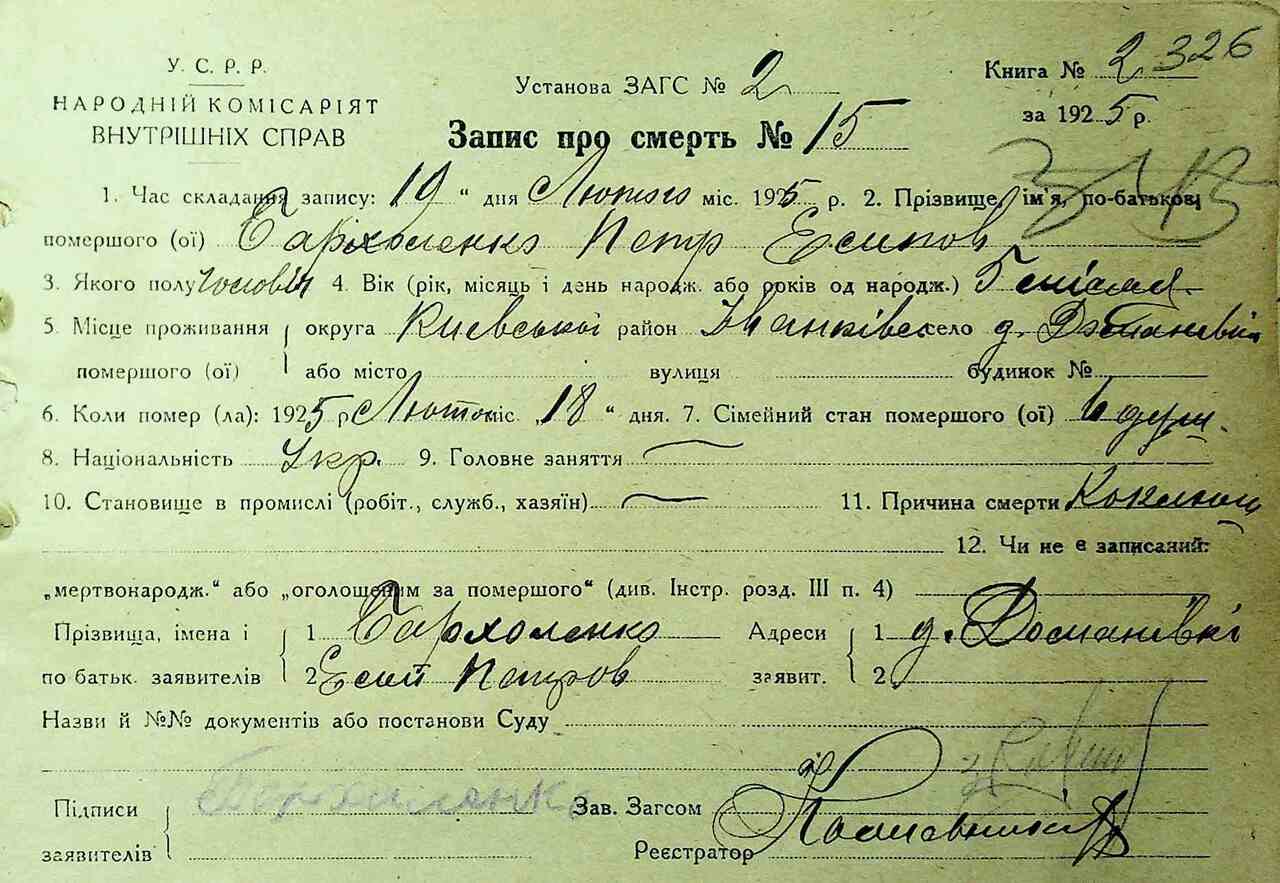 У. С. Р. Р.
НАРОДНІЙ КОМІСАРІЯТ
ВНУТРІШНІХ СПРАВ
Установа ЗАГС № 2
Книга № 2 326
за 1925 р.
Запис про смерть № 15
1. Час складання запису: 19 „ дня Лютого міс. 1925 р. 2. Прізвище, ім'я, по-батькові
помершого (ої) Бархоленко Петр Есипов
3. Якого полу чоловіч 4. Вік (рік, місяць і день народж. або років од народж.) 5
5. Місце проживання округа Киевської район Іванківськ село д.
помершого (ої) або місто вулиця будинок №
6. Коли помер (ла): 1925 р Лютого міс. „18 “ дня. 7. Сімейний стан помершого (ої)
8. Національність Укр. 9. Головне заняття
10. Становище в промислі (робіт., служб., хазяїн) 11. Причина смерти Коклюш
12. Чи не є записаний:
„мертвонародж.“ або „оголошеним за помершого“ (див. Інстр. розд. III п. 4)
Прізвища, імена і 1 Бархоленко Адреси 1 д. Доманівкі
по батьк. заявителів 2 Есип Петров заявит. 2
Назви й №№ документів або постанови Суду
Підписи Зав. Загсом
заявителів Реєстратор